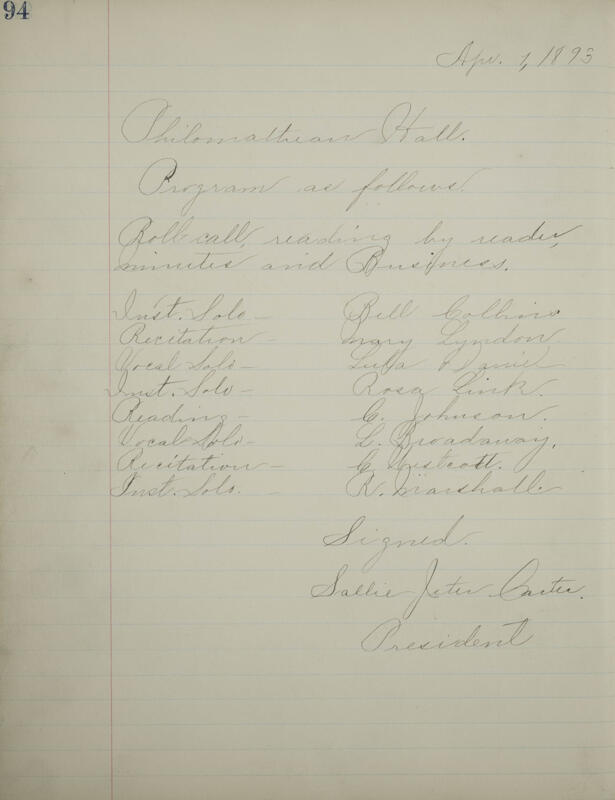 94
Apr. 1, 1893
Philomathean Hall.
Program as follows.
Roll-call, reading by reader,
minutes and Business.
Inst. Solo – Bell Collins
Recitation – Mary Lyndon
Vocal Solo – Lula
Inst. Solo – Rosa Link.
Reading – C. Johnson.
Vocal Solo – L. Broadaway.
Recitation – C. Westcott.
Inst. Solo. – R. Marshall.
Signed.
Sallie Jeter Carter.
President